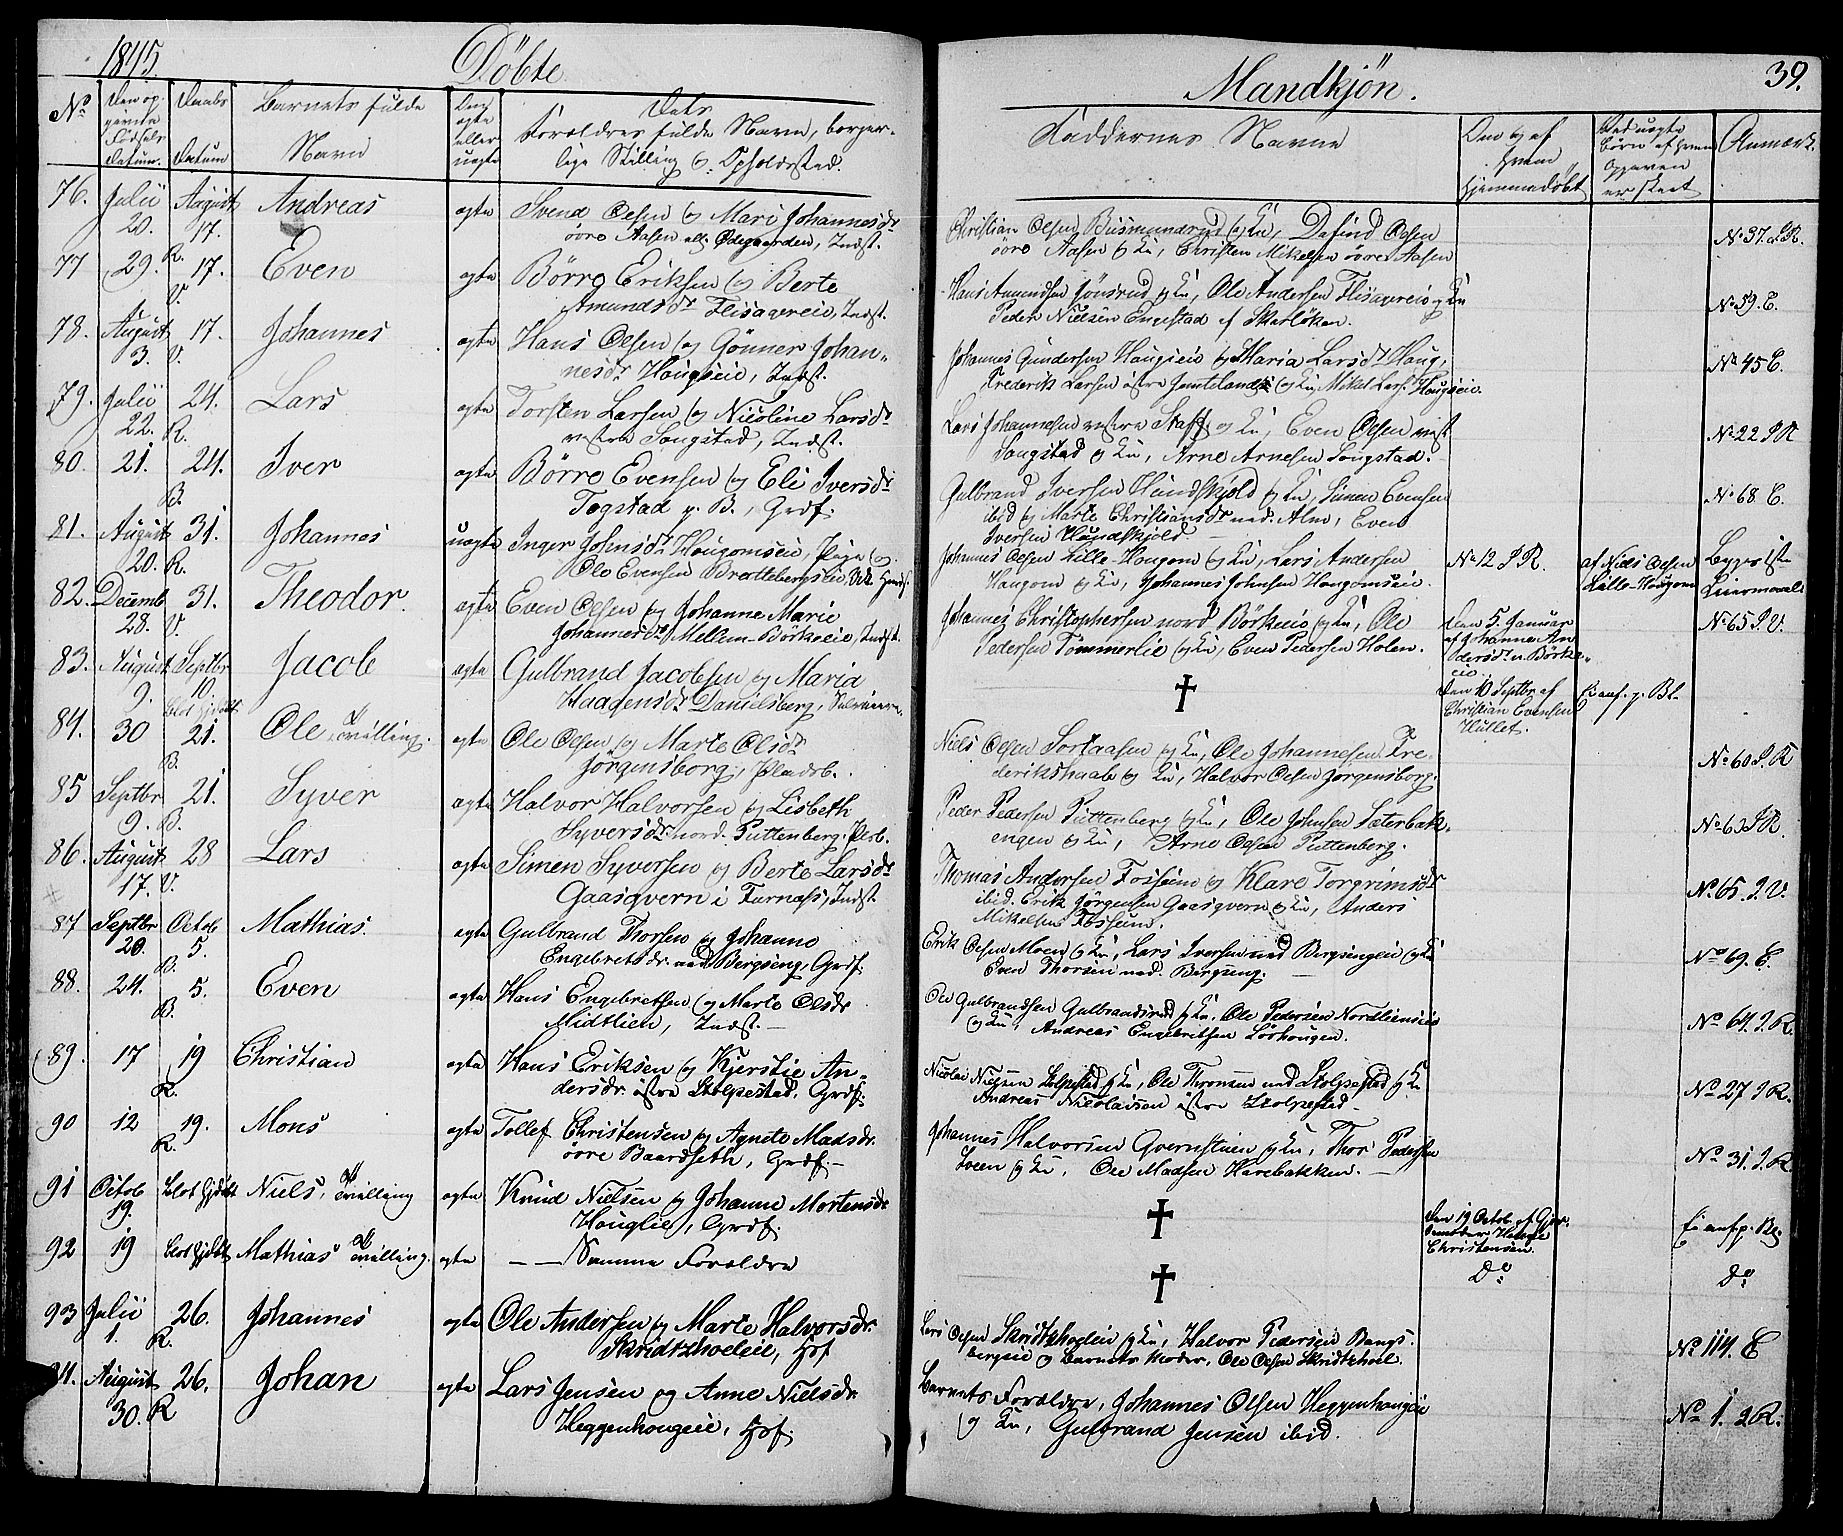 1845.
Döbte
Mandkjön.
39.
No
Den op-
Fødsels
Datum.
Daabs
Datum
Barnets fulde
Navn
eller
uægte
Dets
Forældres fulde Navn, borger-
lige Stilling og Opholdssted.
Faddernes Navne
Om og af
hvem
hjemmedøbt
Ved uægte
Børn af hvem
Opgaven
er skeet
Anmærk.
76. Julii 20. August 17. R. Andreas ægte Svend Olsen og Mari Johannesdr
övre Aasen ell. Ødegaarden, Indst.
Christian Olsen Bismunderud og Ku, Dafind Olsen
övre Aasen og Ku, Christen Mikelsen övre Aasen
No 37. I R.
77 29. 17. V. Even ægte Börre Eriksen og Berte
Amundsdr Flisagereie, Indst.
Hans Amundsen Jönsrud og Ku, Ole Andersen Flisagereie og Ku
Peder Nielsen Engestad
No 59. E.
78. August 3. 17. V. Johannes ægte Hans Olsen og Gönner Johan-
nesdr Haugseie, Indst.
Johannes Gundersen Haugseie og Maria Larsdr Haug,
Frederik Larsen östre og Ku, Mikel Lars. Haugseie.
No 45 E.
79. Julii 22. 24. R. Lars ægte Torsten Larsen og Nicoline Larsdr
vestre Songstad, Indst.
Lars Johannesen vestre Staff og Ku, Even Olsen vest
Songstad og Ku, Arne Arnesen Songstad.
No 22 I R
80. 21. 24. B. Iver ægte Börre Evensen og Eli Iversdr
Togstad p. B., Grdf.
Gulbrand Iversen Hundskjold og Ku, Simen Evensen
ibid og Marte Christiansdr ned. Alm, Even
Iversen Hundskjold
No 68 E.
81. August 20. 31. R. Johannes uægte Inger Johnsdr Haugomseie, Pige og
Ole Evensen Brattebergseie,
Johannes Olsen Lille-Haugom og Ku, Lars Andersen
Haugom og Ku, Johannes Johnsen Haugomseie.
No 12 I R.
af Niels Olsen
Lille-Haugom
82. Decemb 28. 31. V. Theodor. ægte Even Olsen og Johanne Marie
Johannesdr Mellem-Börkeeie, Indst.
Johannes Christophersen nord Börkeie og Ku, Ole
Pedersen Tömmerlie og Ku, Even Pedersen Holen.
Den 5. Januar
af Johanne An-
dersdr n. Börke-
eie.
No 65 I. V.
83. August 9. Septbr 10. Jacob ægte Gulbrand Jacobsen og Maria
Haagensdr Danielsberg,
✝
Den 10 Septbr af
Christian Evensen
Hullet.
Ei anf. p. Bl.
84. 30 21. B. Ole, Tvilling. ægte Ole Olsen og Marte Olsdr
Jörgensborg, Pladsb.
Niels Olsen Sortaasen og Ku, Ole Johannesen Fre-
derikshaab og Ku, Halvor Olsen Jörgensborg.
No 60 I. R
85 Septbr 9. 21. B. Syver ægte Halvor Halvorsen og Lisbeth
Syversdr nord. Puttenberg. Plsb.
Peder Pedersen Puttenberg og Ku, Ole Johnsen Sæterbak-
engen og Ku, Arne Olsen Puttenberg.
No 63 I R.
86. August 17. 28 V. Lars ægte Simen Syversen og Berte Larsdr
Gaasqvern i Furnæs, Indst.
Thomas Andersen Fosseim og Klare Torgrimsdr
ibid. Erik Jörgensen Gaasqvern og Ku, Anders
Mikelsen Fosseim.
No 65. I. V.
87 Septbr 20. Octob 5. Mathias. ægte Gulbrand Thorsen og Johanne
Engebretsdr. ned Bergseng, Grdf.
Erik Olsen Moen og Ku, Lars Iversen ned Bergsengeie og Ku
Even Thorsen ned. Bergseng.
No 69. E.
88. 24. 5. B. Even ægte Hans Engebretsen og Marte Olsdr
Midtlien, Indst.
Ole Gulbrandsen Gulbrandsrud og Ku, Ole Pedersen Nordlienseie
og Ku, Andreas Engebretsen Löshaugen.
No 64. I. R.
89. 17 19 R. Christian ægte Hans Eriksen og Kjerstie An-
dersdr. östre Stolpestad, Grdf.
Nicolai Nielsen Stolpestad og Ku, Ole Thronsen ned Stolpestad og Ku
Andreas Nicolaisen östre Stolpestad
No 27 I. R.
90 12 19. R. Mons ægte Tollef Christensen og Agnete Madsdr.
övre Baardseth, Grdf.
Johannes Halvorsen Qvernstuen og Ku, Thor Pedersen
Sveen og Ku, Ole Madsen Harebakken.
No 31. I. R.
91 Octob 19. Blot hjdöbt Niels, Tvilling ægte Knud Nielsen og Johanne Mortensdr
Hauglie, Grdf.
✝
Den 19 Octob. af
Christensen.
Ei anf p. Bl.
92 19 Blot hjdöbt Mathias Tvilling. ægte — — Samme Forældre
✝
Do
Do
93 Julii 1. 26. R. Johannes ægte Ole Andersen og Marte Halvorsdr.
Skridtshoeleie, Hof
Lars Olsen Skridtshoeleie og Ku, Halvor Pedersen Bangs-
bergeie og Barnets Moder, Ole Olsen Skridtshoel.
No 114. E
94. August 30. 26. R Johan ægte Lars Jensen og Anne Nielsdr
Heggenhaugeie, Hof.
Barnets Forældre, Johannes Olsen Heggenhaugeie
og Ku, Gulbrand Jensen ibid.
No 1. I R.